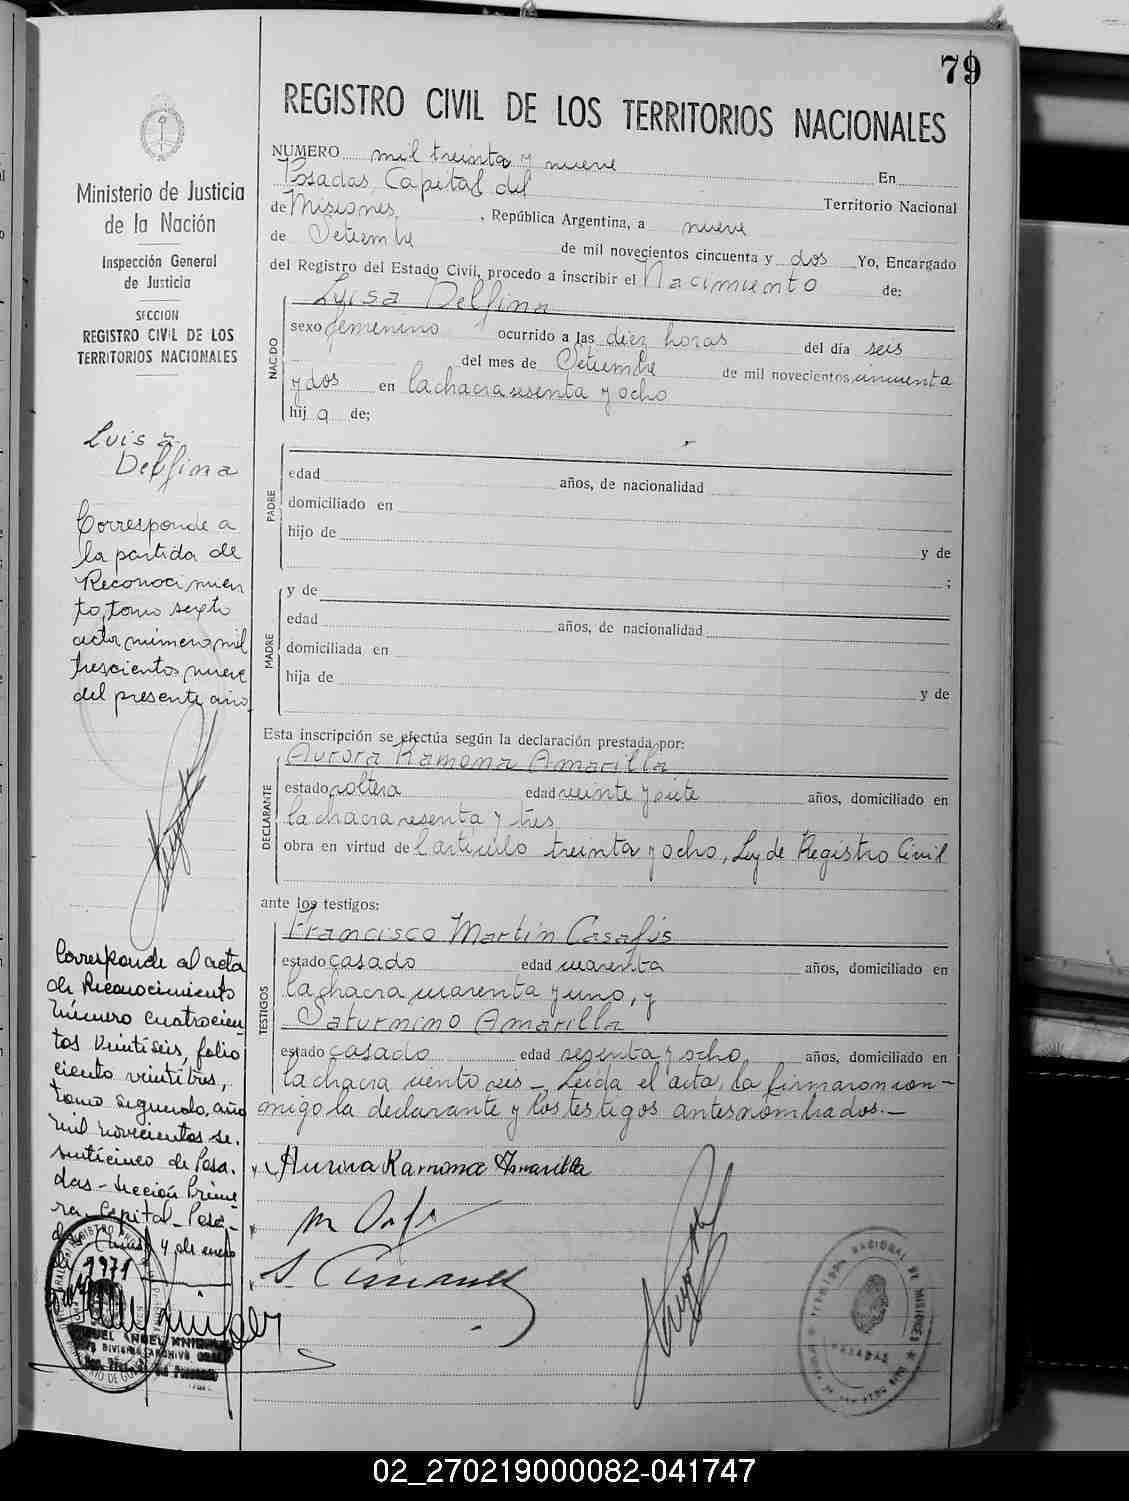 79
REGISTRO CIVIL DE LOS TERRITORIOS NACIONALES
Ministerio de Justicia
de la Nación
Inspección General
de Justicia
SECCIÓN
REGISTRO CIVIL DE LOS
TERRITORIOS NACIONALES
NUMERO mil treinta y nueve En
Posadas, Capital del Territorio Nacional
de Misiones, , República Argentina, a nueve
de Setiembre de mil novecientos cincuenta y dos Yo, Encargado
del Registro del Estado Civil, procedo a inscribir el Nacimiento de:
NACIDO
Luisa Delfina
sexo femenino ocurrido a las diez horas del día seis
del mes de Setiembre de mil novecientos cincuenta
y dos en la chacra sesenta y ocho
hij a de;
PADRE
edad años, de nacionalidad
domiciliado en
hijo de y de
;
MADRE
y de
edad años, de nacionalidad
domiciliada en
hija de y de
Esta inscripción se efectúa según la declaración prestada por:
DECLARANTE
Aurora Ramona Amarilla
estado soltera edad veinte y siete años, domiciliado en
la chacra sesenta y tres
obra en virtud del artículo treinta y ocho, Ley de Registro Civil
ante los testigos:
TESTIGOS
Francisco Martin Casafús
estado casado edad cuarenta años, domiciliado en
la chacra cuarenta y uno, y
Saturnino Amarilla
estado casado edad sesenta y ocho años, domiciliado en
la chacra ciento seis - Leída el acta, la firmaron con-
migo la declarante y los testigos antes nombrados.-
Aurora Ramona Amarilla
Luisa
Delfina
Corresponde a
la partida de
Reconocimien
to, tomo sexto
acta número mil
trescientos nueve
del presente año
Corresponde al acta
de Reconocimiento
número cuatrocien
tos veintiseis, folio
ciento veintitres,
tomo segundo, año
mil novecientos se.
senticinco de Posa.
das - Sección Prime
ra - Capital - Posa-
4 de enero
1971
TERRITORIO NACIONAL DE MISIONES
POSADAS
02_270219000082-041747